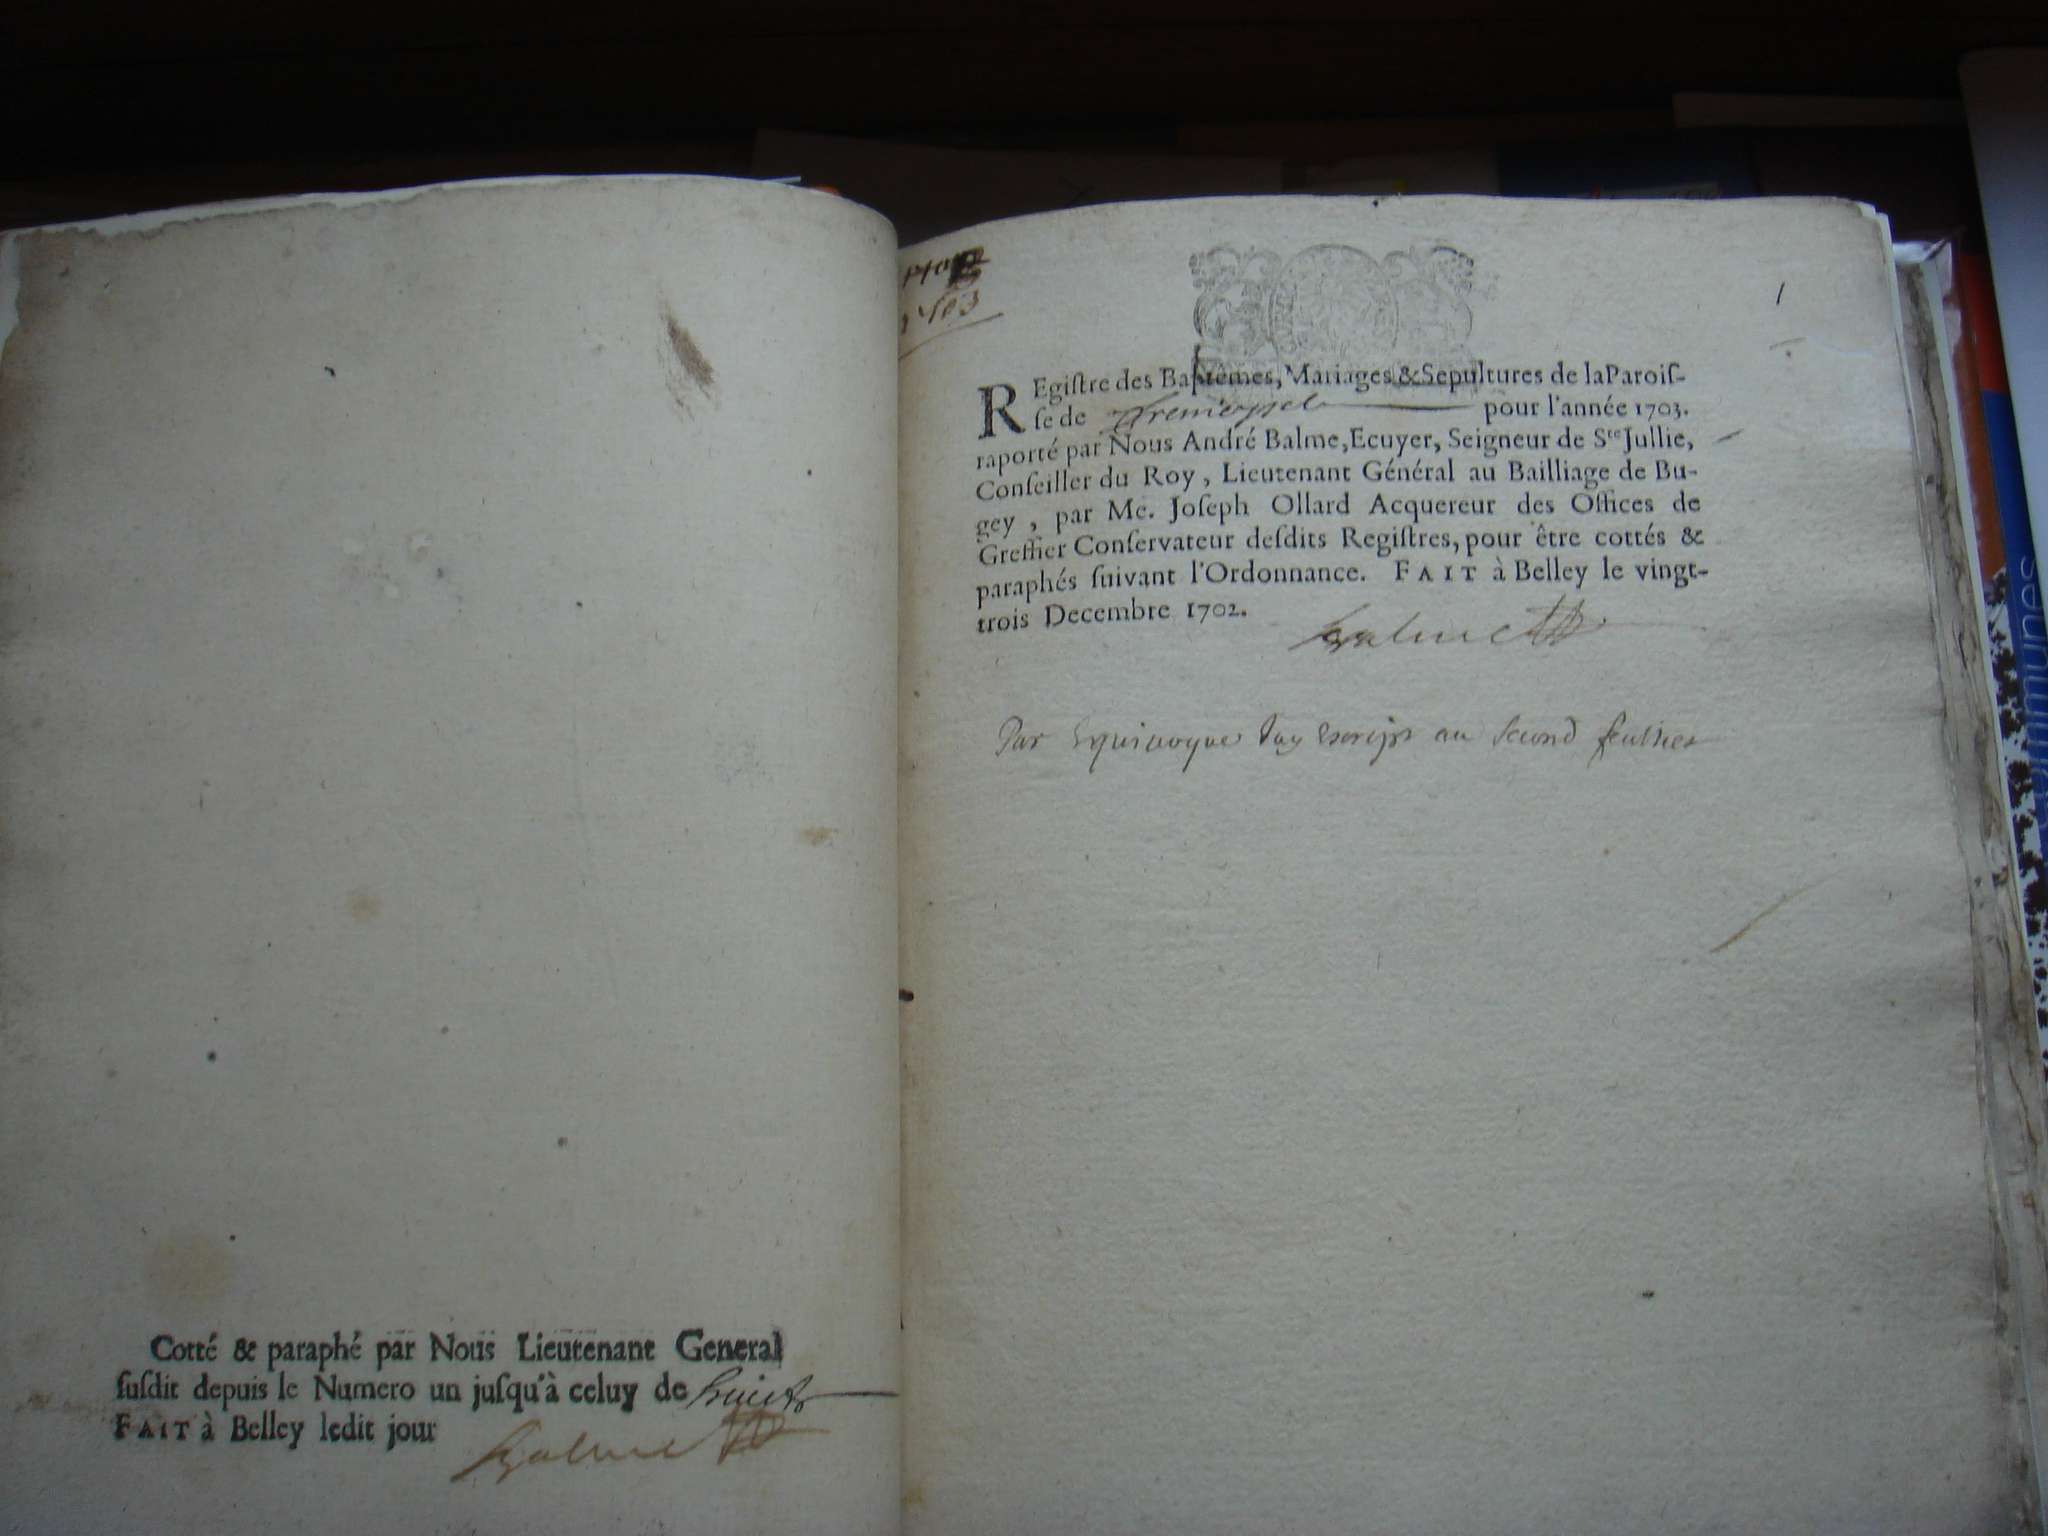 Cotté & paraphé par Nous Lieutenant General
ſuſdit depuis le Numero un juſqu'à celuy de huict
FAIT à Belley ledit jour
Balme
1703
1
REgiſtre des Baptêmes, Mariages & Sepultures de la Paroiſ-
ſe de pour l'année 1703.
raporté par Nous André Balme, Ecuyer, Seigneur de Ste Jullie,
Conſeiller du Roy, Lieutenant Général au Bailliage de Bu-
gey, par Me. Joſeph Ollard Acquereur des Offices de
Greffier Conſervateur deſdits Regiſtres, pour être cottés &
paraphés ſuivant l'Ordonnance. FAIT à Belley le vingt-
trois Decembre 1702.
Balme
Par Equivoque Jay Escript au second feulliet
communes